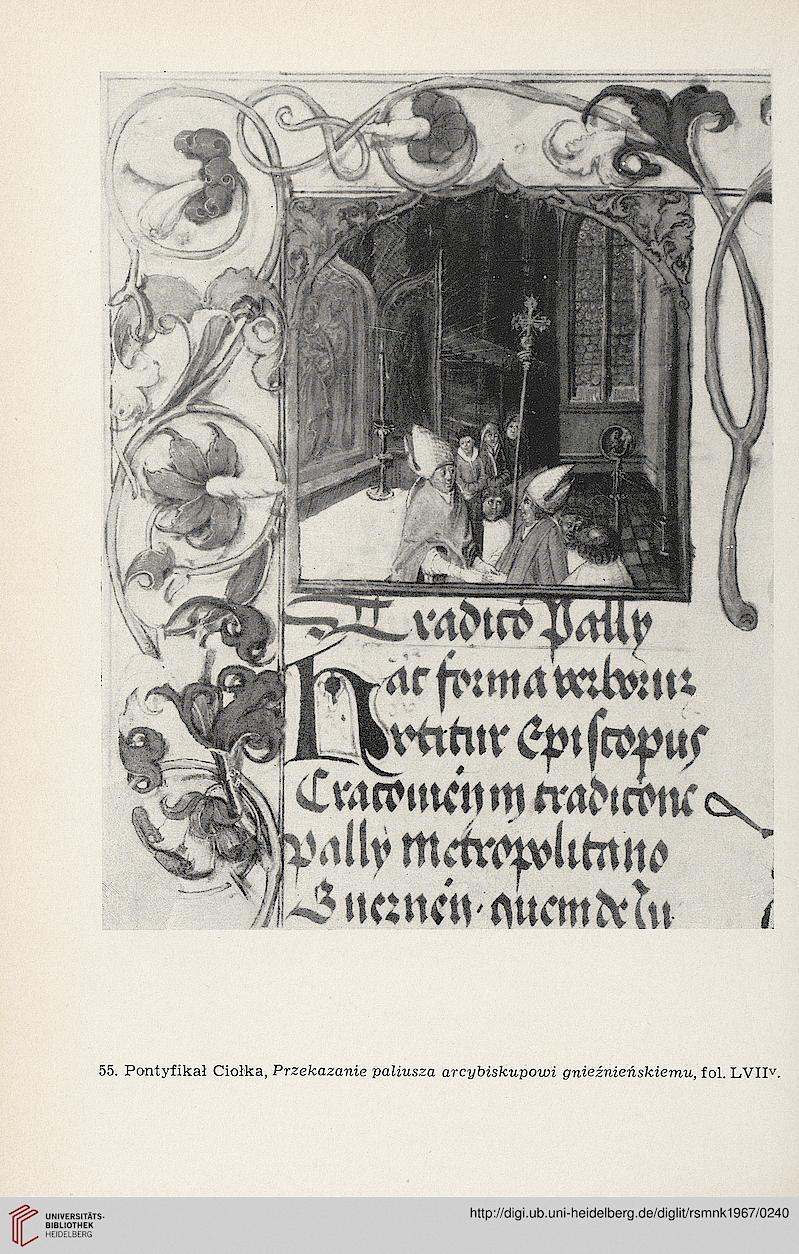 Tradicō Pally
Hac forma verborum
vtitur Episcopus
Cracouien̄ in tradicōne
Pally metropolitano
Gnezneń. quem de
55. Pontyfikał Ciołka, Przekazanie paliusza arcybiskupowi gnieźnieńskiemu, fol. LVIIv.
UNIVERSITÄTS-
BIBLIOTHEK
HEIDELBERG
http://digi.ub.uni-heidelberg.de/diglit/rsmnk1967/0240